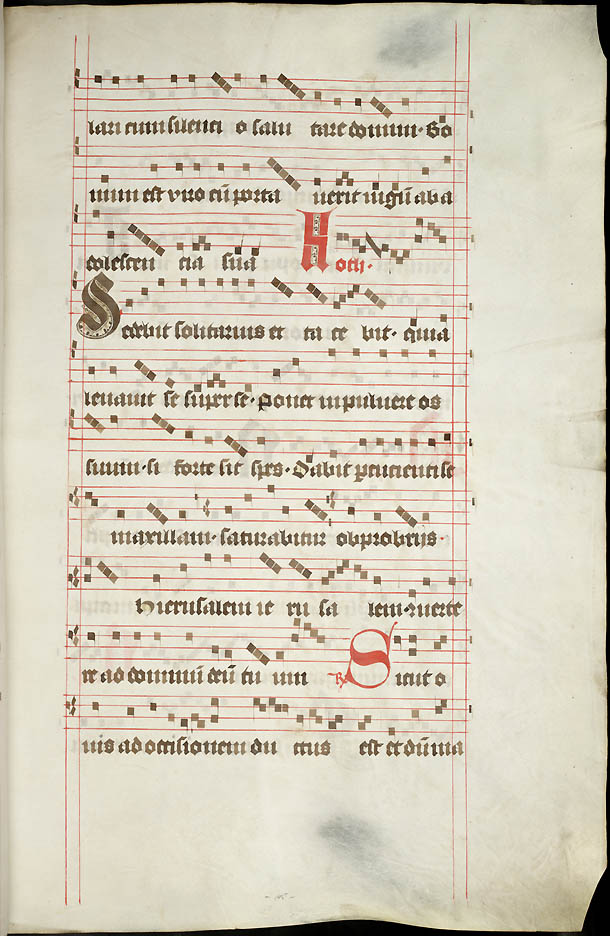 lari cum silenci o salu tare domini. Bo
num est viro cū porta uerit iugū ab a
dolescen cia sua Hoth.
Sedebit solitarius et ta ce bit. quia
leuauit se super se. Ponet in puluere os
suum. si forte sit spes. Dabit percucienti se
maxillam. saturabitur obprobrijs.
Hierusalem ie ru sa lem. uerte
re ad dominū deū tu um R Sicut o
uis ad occisionem du ctus est et dū ma